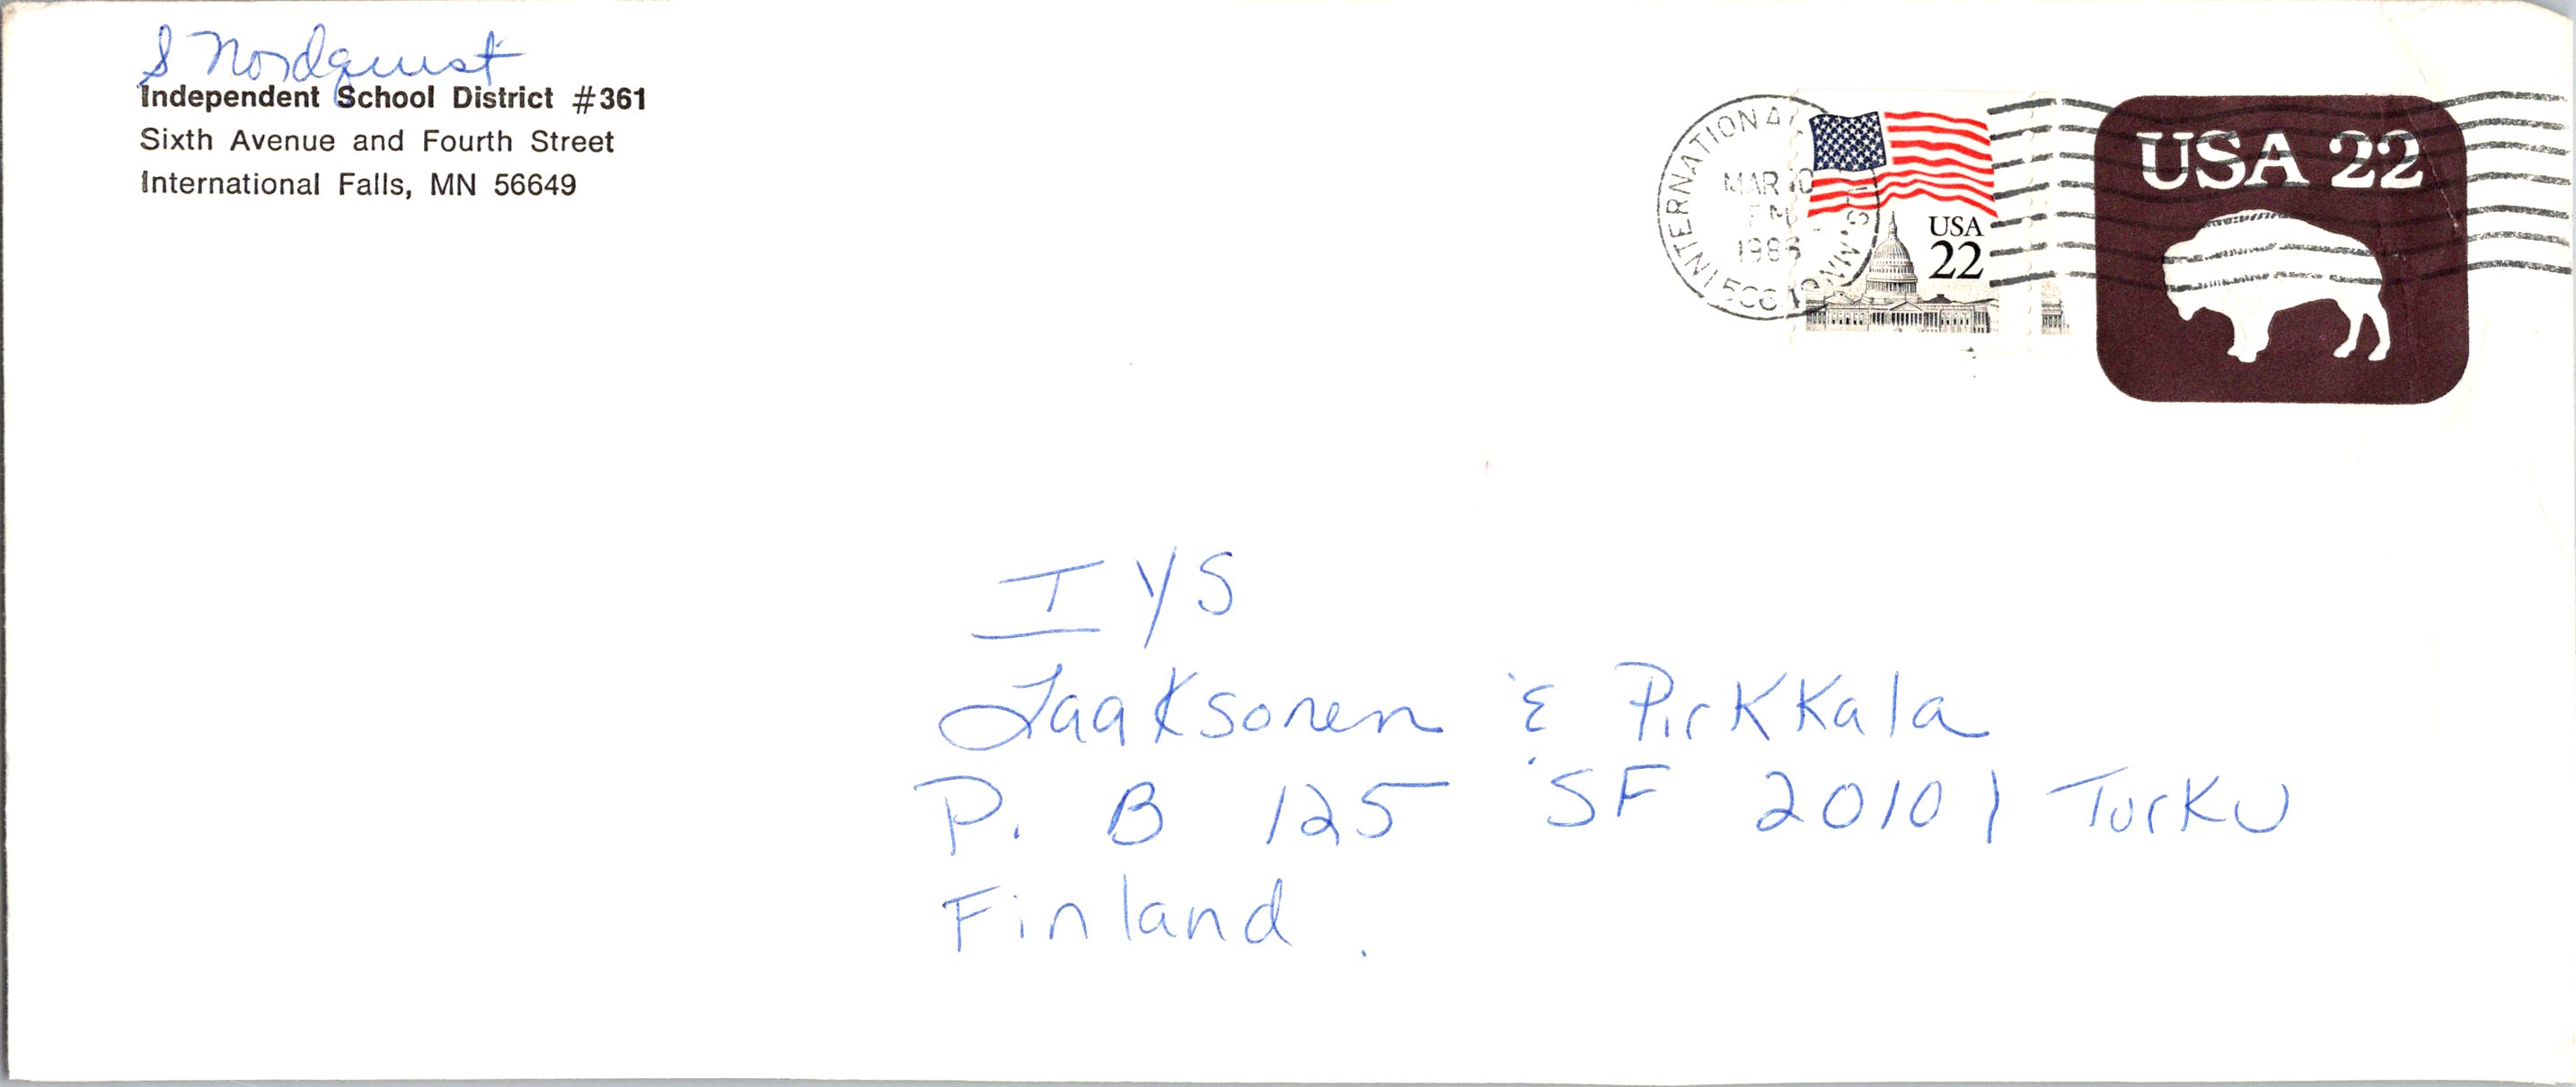 S Nordquist
Independent School District #361
Sixth Avenue and Fourth Street
International Falls, MN 56649
INTERNATIONAL FALLS, MN
MAR 10
PM
USA
22
USA 22
IYS
Laaksonen & Pirkkala
P. B 125 SF 20101 Turku
Finland.